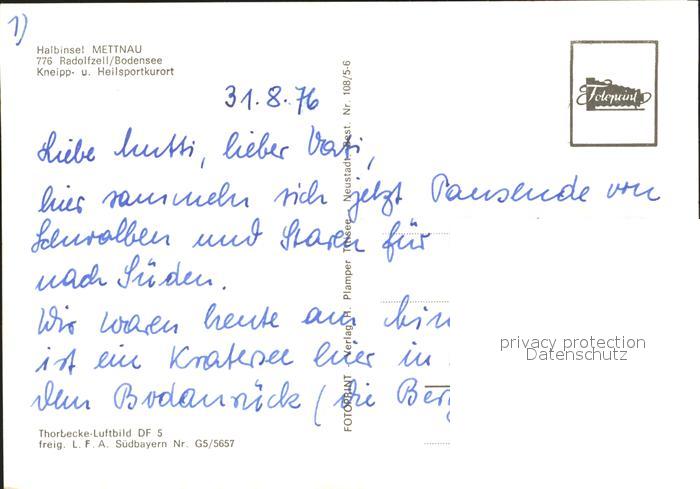 1)
Halbinsel METTNAU
776 Radolfzell/Bodensee
Kneipp- u. Heilsportkurort
Fotoprint
31.8.76
Liebe Mutti, lieber Vati,
hier sammeln sich jetzt Tausende von
Schwalben und Staren für
nach Süden.
Wir waren heute am
ist ein Kratersee hier in
dem Bodanrück (die Ber
FOTOPRINT - Verlag H. Plamper Titisee-Neustadt Best. Nr. 108/5-6
privacy protection
Datenschutz
Thorbecke-Luftbild DF 5
freig. L. F. A. Südbayern Nr. G5/5657